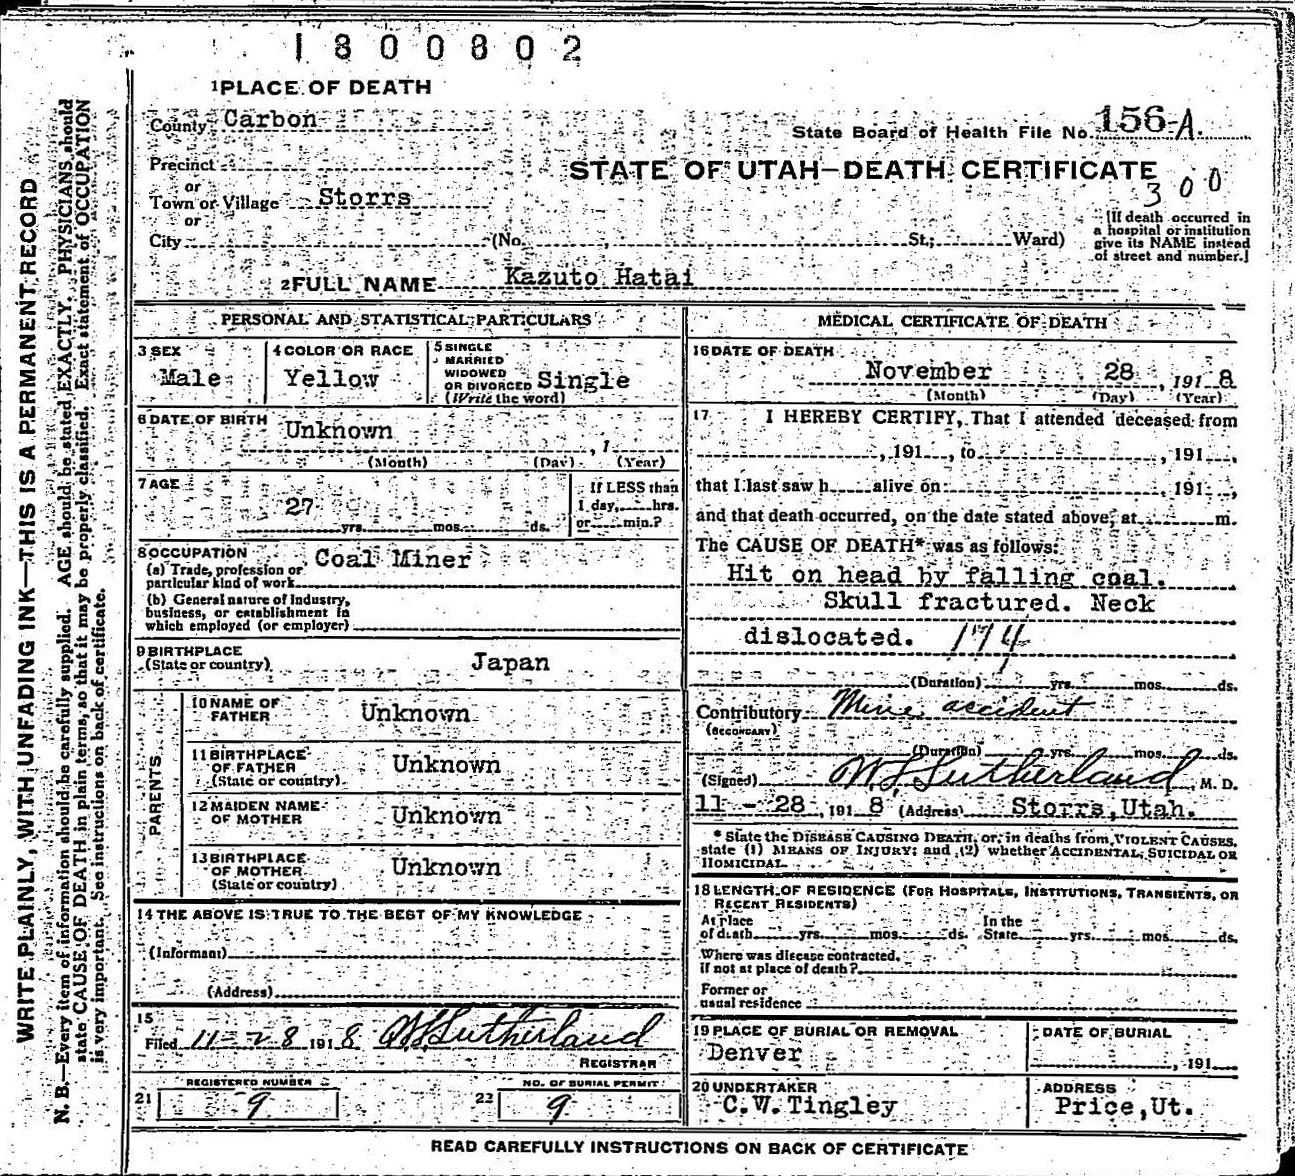 1800802
1 PLACE OF DEATH
County Carbon
State Board of Health File No. 156-A.
Precinct
STATE OF UTAH—DEATH CERTIFICATE
or
Town or Village Storrs
300
or
City (No. , St.; Ward)
[If death occurred in
a hospital or institution
give its NAME instead
of street and number.]
2 FULL NAME Kazuto Hatai
WRITE PLAINLY, WITH UNFADING INK—THIS IS A PERMANENT RECORD
N. B.—Every item of information should be carefully supplied. AGE should be stated EXACTLY. PHYSICIANS should
state CAUSE OF DEATH in plain terms, so that it may be properly classified. Exact statement of OCCUPATION
is very important. See instructions on back of certificate.
PERSONAL AND STATISTICAL PARTICULARS
3 SEX
Male
4 COLOR OR RACE
Yellow
5 SINGLE
MARRIED
WIDOWED
OR DIVORCED Single
(Write the word)
6 DATE OF BIRTH Unknown
, 1
(Month) (Day) (Year)
7 AGE
27 yrs. mos. ds.
If LESS than
1 day, hrs.
or min.?
8 OCCUPATION Coal Miner
(a) Trade, profession or
particular kind of work
(b) General nature of Industry,
business, or establishment in
which employed (or employer)
9 BIRTHPLACE
(State or country) Japan
PARENTS
10 NAME OF
FATHER Unknown
11 BIRTHPLACE
OF FATHER Unknown
(State or country)
12 MAIDEN NAME
OF MOTHER Unknown
13 BIRTHPLACE
OF MOTHER Unknown
(State or country)
14 THE ABOVE IS TRUE TO THE BEST OF MY KNOWLEDGE
(Informant)
(Address)
15
Filed 11-28 1918 W.L. Sutherland
REGISTRAR
REGISTERED NUMBER
21 9
NO. OF BURIAL PERMIT
22 9
MEDICAL CERTIFICATE OF DEATH
16 DATE OF DEATH
November 28, 1918
(Month) (Day) (Year)
17 I HEREBY CERTIFY, That I attended deceased from
, 191 , to , 191 ,
that I last saw h alive on , 191 ,
and that death occurred, on the date stated above, at m.
The CAUSE OF DEATH* was as follows:
Hit on head by falling coal.
Skull fractured. Neck
dislocated. 174
(Duration) yrs. mos. ds.
Contributory Mine accident
(SECONDARY)
(Duration) yrs. mos. ds.
(Signed) W.L. Sutherland, M. D.
11 - 28, 1918 (Address) Storrs, Utah.
* State the DISEASE CAUSING DEATH, or, in deaths from VIOLENT CAUSES,
state (1) MEANS OF INJURY; and (2) whether ACCIDENTAL, SUICIDAL OR
HOMICIDAL
18 LENGTH OF RESIDENCE (FOR HOSPITALS, INSTITUTIONS, TRANSIENTS, OR
RECENT RESIDENTS)
At place In the
of death yrs. mos. ds. State yrs. mos. ds.
Where was disease contracted,
if not at place of death?
Former or
usual residence
19 PLACE OF BURIAL OR REMOVAL
Denver
DATE OF BURIAL
, 191
20 UNDERTAKER
C.W. Tingley
ADDRESS
Price, Ut.
READ CAREFULLY INSTRUCTIONS ON BACK OF CERTIFICATE